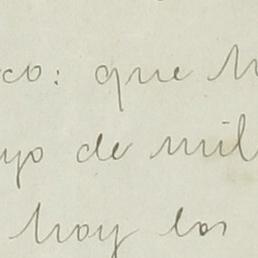 co: que
yo de mil
hoy los